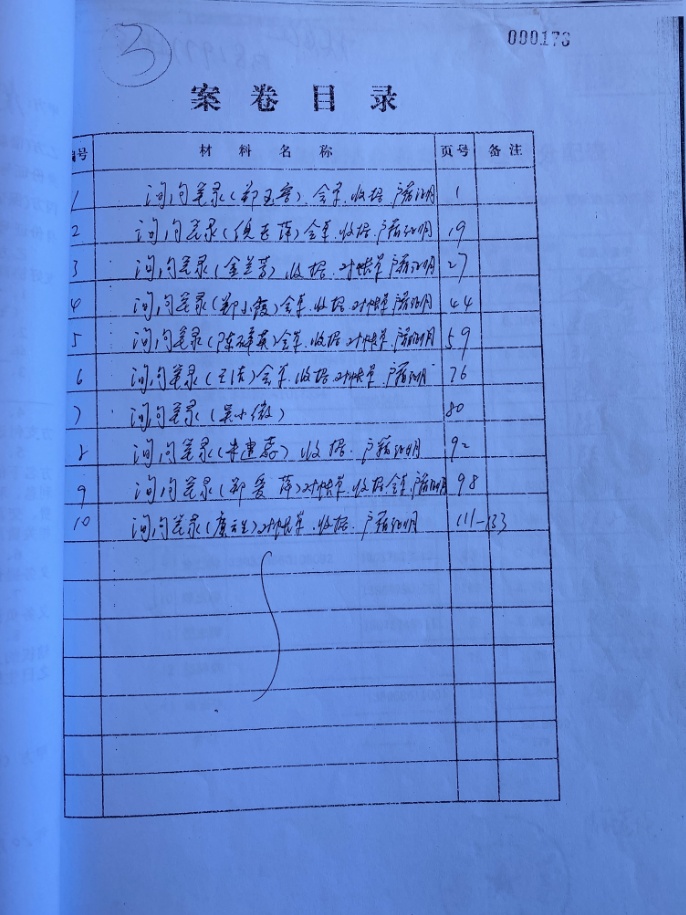 ③
000173
案卷目录
编号 材料名称 页号 备注
1 询问笔录(郑玉 会单.收据.户籍证明 1
2 询问笔录( 萍)会单.收据.户籍证明 19
3 询问笔录(金兰芳)收据.对帐单.户籍证明 27
4 询问笔录(郑小霞)会单.收据.对帐单.户籍证明 44
5 询问笔录(陈 英)会单.收据.对帐单.户籍证明 59
6 询问笔录(王洁)会单.收据.对帐单.户籍证明 76
7 询问笔录(吴小微) 80
8 询问笔录( 建 )收据.户籍证明 92
9 询问笔录(郑爱萍)对帐单.收据.会单.户籍证明 98
10 询问笔录( )对帐单.收据.户籍证明 111-133